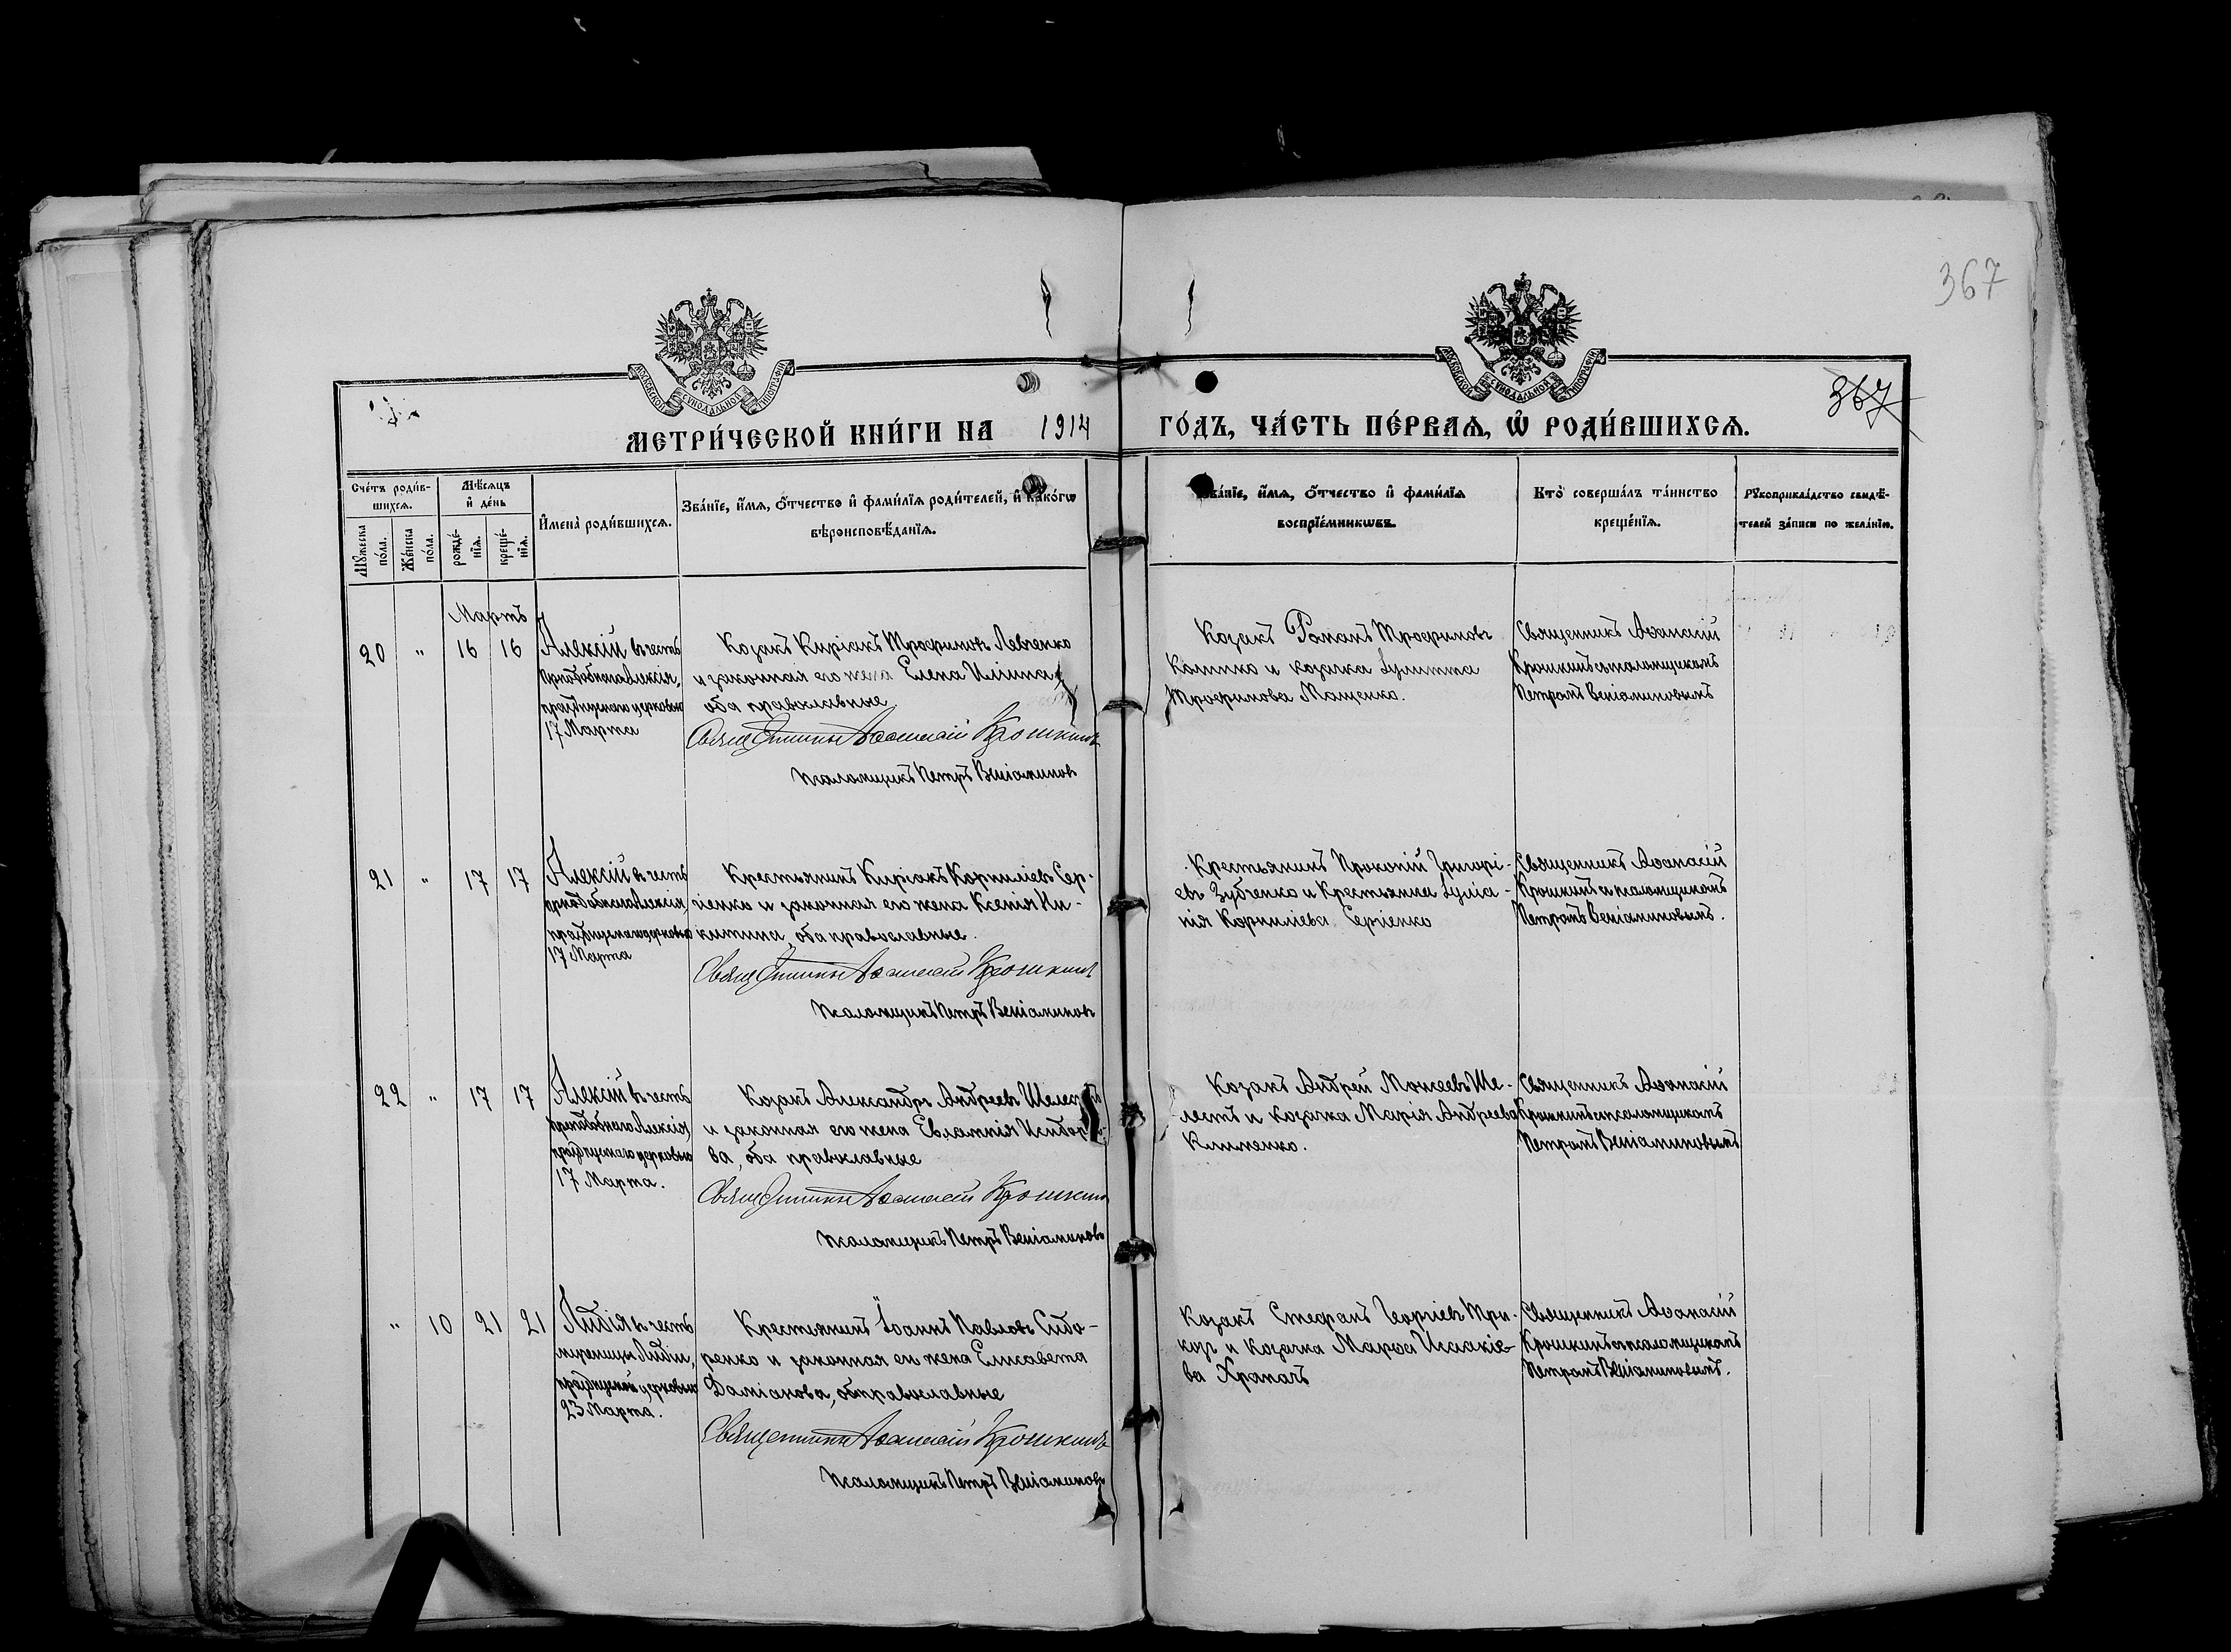 367
МОСКОВСКОЙ СѴНОДАЛЬНОЙ ТИПОГРАФІИ
МОСКОВСКОЙ СѴНОДАЛЬНОЙ ТИПОГРАФІИ
367
МЕТРИ́ЧЕСКОЙ КНИ́ГИ НА 1914 ГО́ДЪ, ЧА́СТЬ ПЕ́РВАѦ, Ѡ҆ РОДИ́ВШИХСѦ.
Сче́тъ роди́в-
шихсѧ.
Мꙋ́жеска по́ла.
Же́нска по́ла.
Мѣ́сѧцъ
и҆ де́нь
рожде́-
нїѧ.
креще́-
нїѧ.
И҆мена̀ роди́вшихсѧ.
Зва́нїе, и҆́мѧ, ѻ҆́тчество и҆ фами́лїѧ роди́телей, и҆ како́гѡ
вѣроисповѣ́данїѧ.
Зва́нїе, и҆́мѧ, ѻ҆́тчество и҆ фами́лїѧ
воспрїе́мникѡвъ.
Кто̀ соверша́лъ та́инство
креще́нїѧ.
Рꙋкоприкла́дство свидѣ́-
телей за́писи по жела́нїю.
Мартъ
20 " 16 16
Алексій въ честь
Преподобнаго Алексія,
празднуемаго церковью
17 Марта
Козакъ Киріакъ Трофимовъ Левченко
и законная его жена Елена Иліина,
оба православные
Священникъ Аѳанасій Крошкинъ
Псаломщикъ Петръ Веніаминовъ
Козакъ Романъ Трофимовъ
Калитка и козачка Іулитта
Трофимова Мащенко.
Священникъ Аѳанасій
Крошкинъ съ псаломщикомъ
Петромъ Веніаминовымъ
21 " 17 17
Алексій въ честь
преподобнаго Алексія,
празднуемаго церковью
17 Марта
Крестьянинъ Киріакъ Корниліевъ Сер-
гіенко и законная его жена Ксенія Ни-
китина, оба православные.
Священникъ Аѳанасій Крошкинъ
Псаломщикъ Петръ Веніаминовъ
Крестьянинъ Прокопій Григорі-
евъ Зубченко и крестьянка Іуліа-
нія Корниліева Сергіенко
Священникъ Аѳанасій
Крошкинъ съ псаломщикомъ
Петромъ Веніаминовымъ.
22 " 17 17
Алексій въ честь
преподобнаго Алексія,
празднуемаго церковью
17 Марта.
Козакъ Александръ Андреевъ Шелестъ
и законная его жена Евлампія Исидоро-
ва, оба православные
Священникъ Аѳанасій Крошкинъ
Псаломщикъ Петръ Веніаминовъ
Козакъ Андрей Моисеевъ Ше-
лестъ и козачка Марія Андреева
Клименко.
Священникъ Аѳанасій
Крошкинъ съ псаломщикомъ
Петромъ Веніаминовымъ
" 10 21 21
Лидія въ честь
мученицы Лидіи,
празднуемой церковью
23 Марта.
Крестьянинъ Іоаннъ Павловъ Сидо-
ренко и законная его жена Елисавета
Даміанова, оба православные
Священникъ Аѳанасій Крошкинъ
Псаломщикъ Петръ Веніаминовъ
Козакъ Стефанъ Георгіевъ Три-
козъ и козачка Марѳа Исаакіе-
ва Храпачъ
Священникъ Аѳанасій
Крошкинъ съ псаломщикомъ
Петромъ Веніаминовымъ.